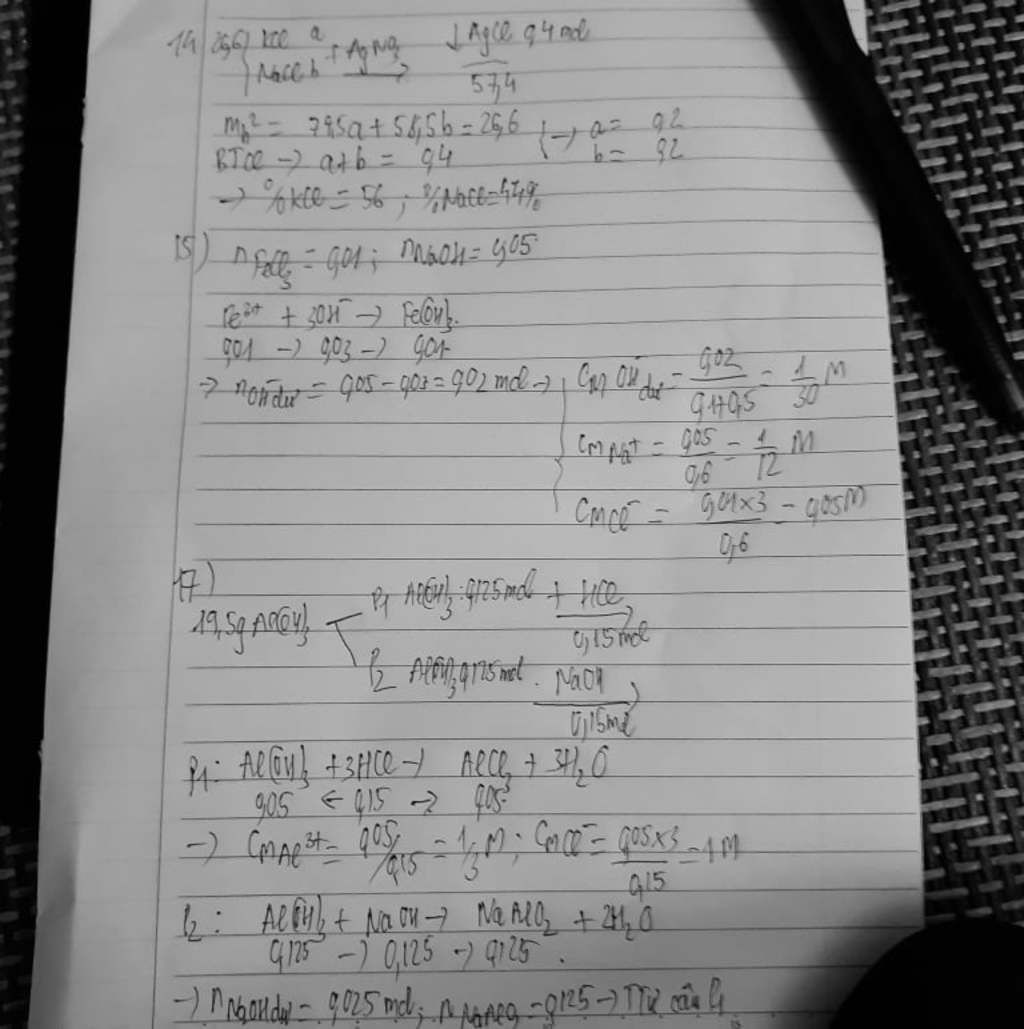 14) 26,6 { KCl a
NaCl b + AgNO3 → ↓AgCl 0,4 mol
57,4
mh² = 74,5a + 58,5b = 26,6 } → a = 0,2
BTCl → a+b = 0,4 b = 0,2
→ %KCl = 56 ; %NaCl = 44%
15) nFeCl3 = 0,01 ; nNaOH = 0,05
Fe3+ + 3OH- → Fe(OH)3.
0,01 → 0,03 → 0,01
→ nOH- dư = 0,05 - 0,03 = 0,02 mol → { CM OH- dư = 0,02/0,1+0,5 = 1/30 M
CM Na+ = 0,05/0,6 = 1/12 M
CM Cl- = 0,01×3/0,6 = 0,05M
17)
19,5g Al(OH)3 P1 Al(OH)3 : 0,125 mol + HCl → 0,15 mol
P2 Al(OH)3 0,125 mol . NaOH → 0,15 mol
P1: Al(OH)3 + 3HCl → AlCl3 + 3H2O
0,05 ← 0,15 → 0,05
→ CM Al3+ = 0,05/0,15 = 1/3 M ; CM Cl- = 0,05×3/0,15 = 1M
P2 : Al(OH)3 + NaOH → NaAlO2 + 2H2O
0,125 → 0,125 → 0,125 .
→ nNaOH dư = 0,025 mol ; nNaAlO2 = 0,125 → TTự câu P1